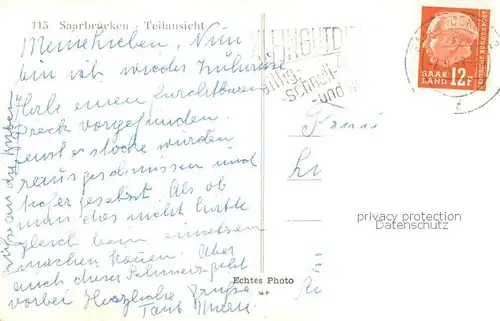 115 Saarbrücken - Teilansicht
Meine Lieben, Nun
bin ich wieder Zuhause
Habe einen furchtbaren
Dreck vorgefunden.
fensterstöcke wurden
rausgeschmissen und
höher gesetzt. Als ob
man das nicht hätte
gleich beim einsetzen
machen können. Aber
auch dieser Schmerz geht
vorbei Herzliche Grüße
Tante
Grüße an die
KLEINGUT
billig
-schnell-
-und
SAAR
LAND
12F
DEUTSCHE BUNDESPOST
privacy protection
Datenschutz
Echtes Photo